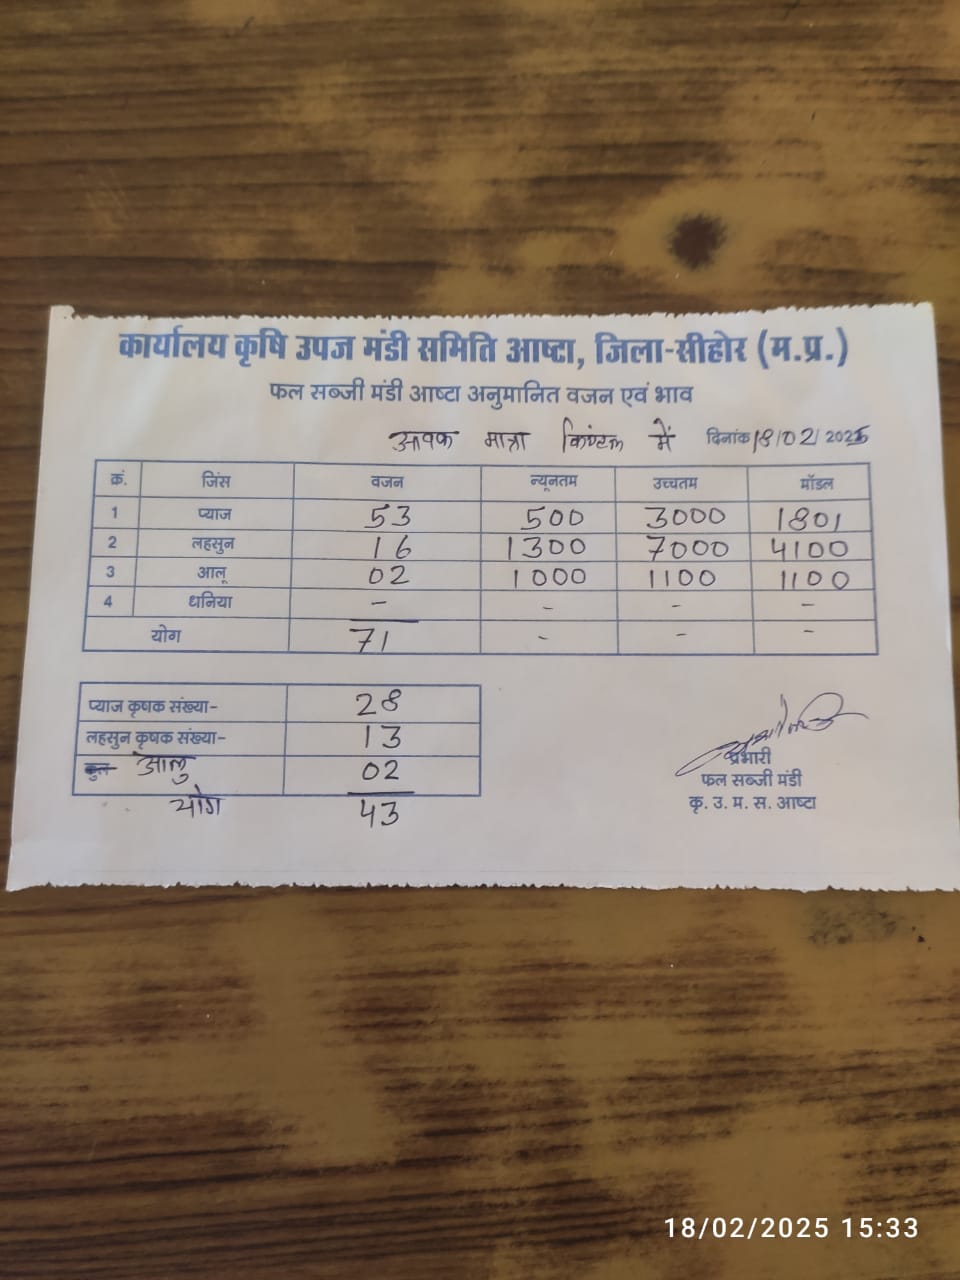 कार्यालय कृषि उपज मंडी समिति आष्टा, जिला-सीहोर (म.प्र.)
फल सब्जी मंडी आष्टा अनुमानित वजन एवं भाव
आवक मात्रा क्विंटल में दिनांक 18/02/2025
क्रं. जिंस वजन न्यूनतम उच्चतम मॉडल
1 प्याज 53 500 3000 1801
2 लहसुन 16 1300 7000 4100
3 आलू 02 1000 1100 1100
4 धनिया - - - -
योग 71 - - -
प्याज कृषक संख्या- 28
लहसुन कृषक संख्या- 13
आलु 02
योग 43
प्रभारी
फल सब्जी मंडी
कृ. उ. म. स. आष्टा
18/02/2025 15:33